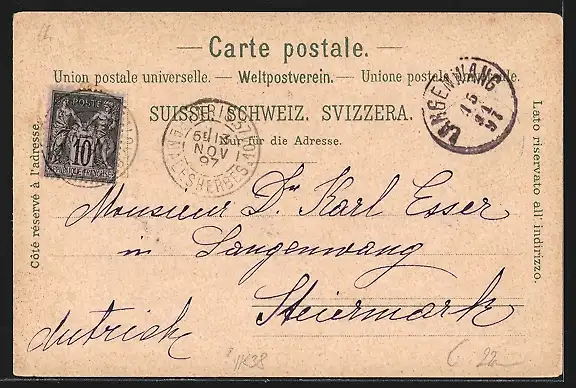 Carte postale.
Union postale universelle. — Weltpostverein. — Unione postale universale.
SUISSE. SCHWEIZ. SVIZZERA.
Nur für die Adresse.
Côté réservé à l'adresse.
Lato riservato all' indirizzo.
POSTE
10
LANGENWANG
15
11
97
PARIS
13
NOV
97
Monsieur Dr Karl Esser
in Langenwang
Steiermark
Autriche
22